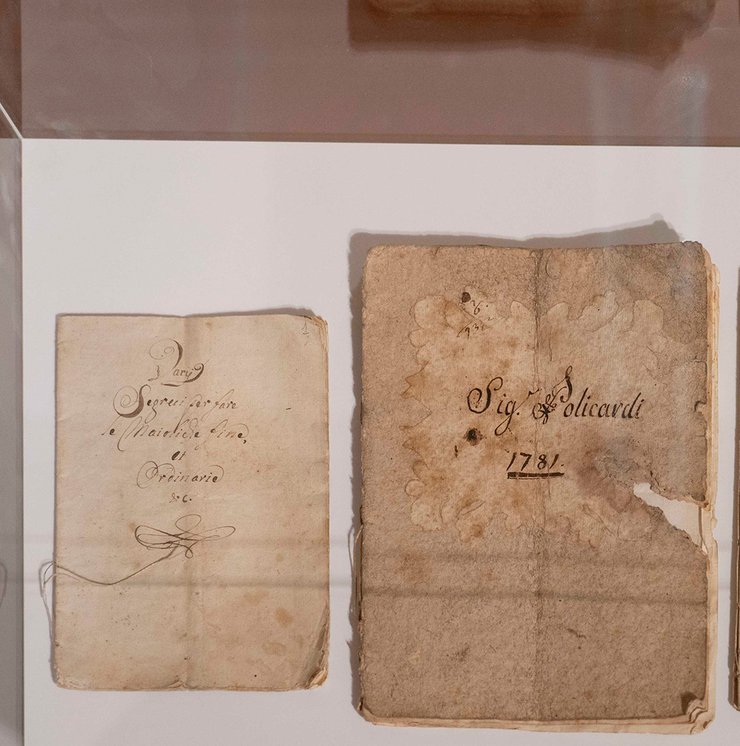 Varij
Segreti per fare
le Maioliche fine,
et
Ordinarie
&c.
Sig.r Policardi
1781.